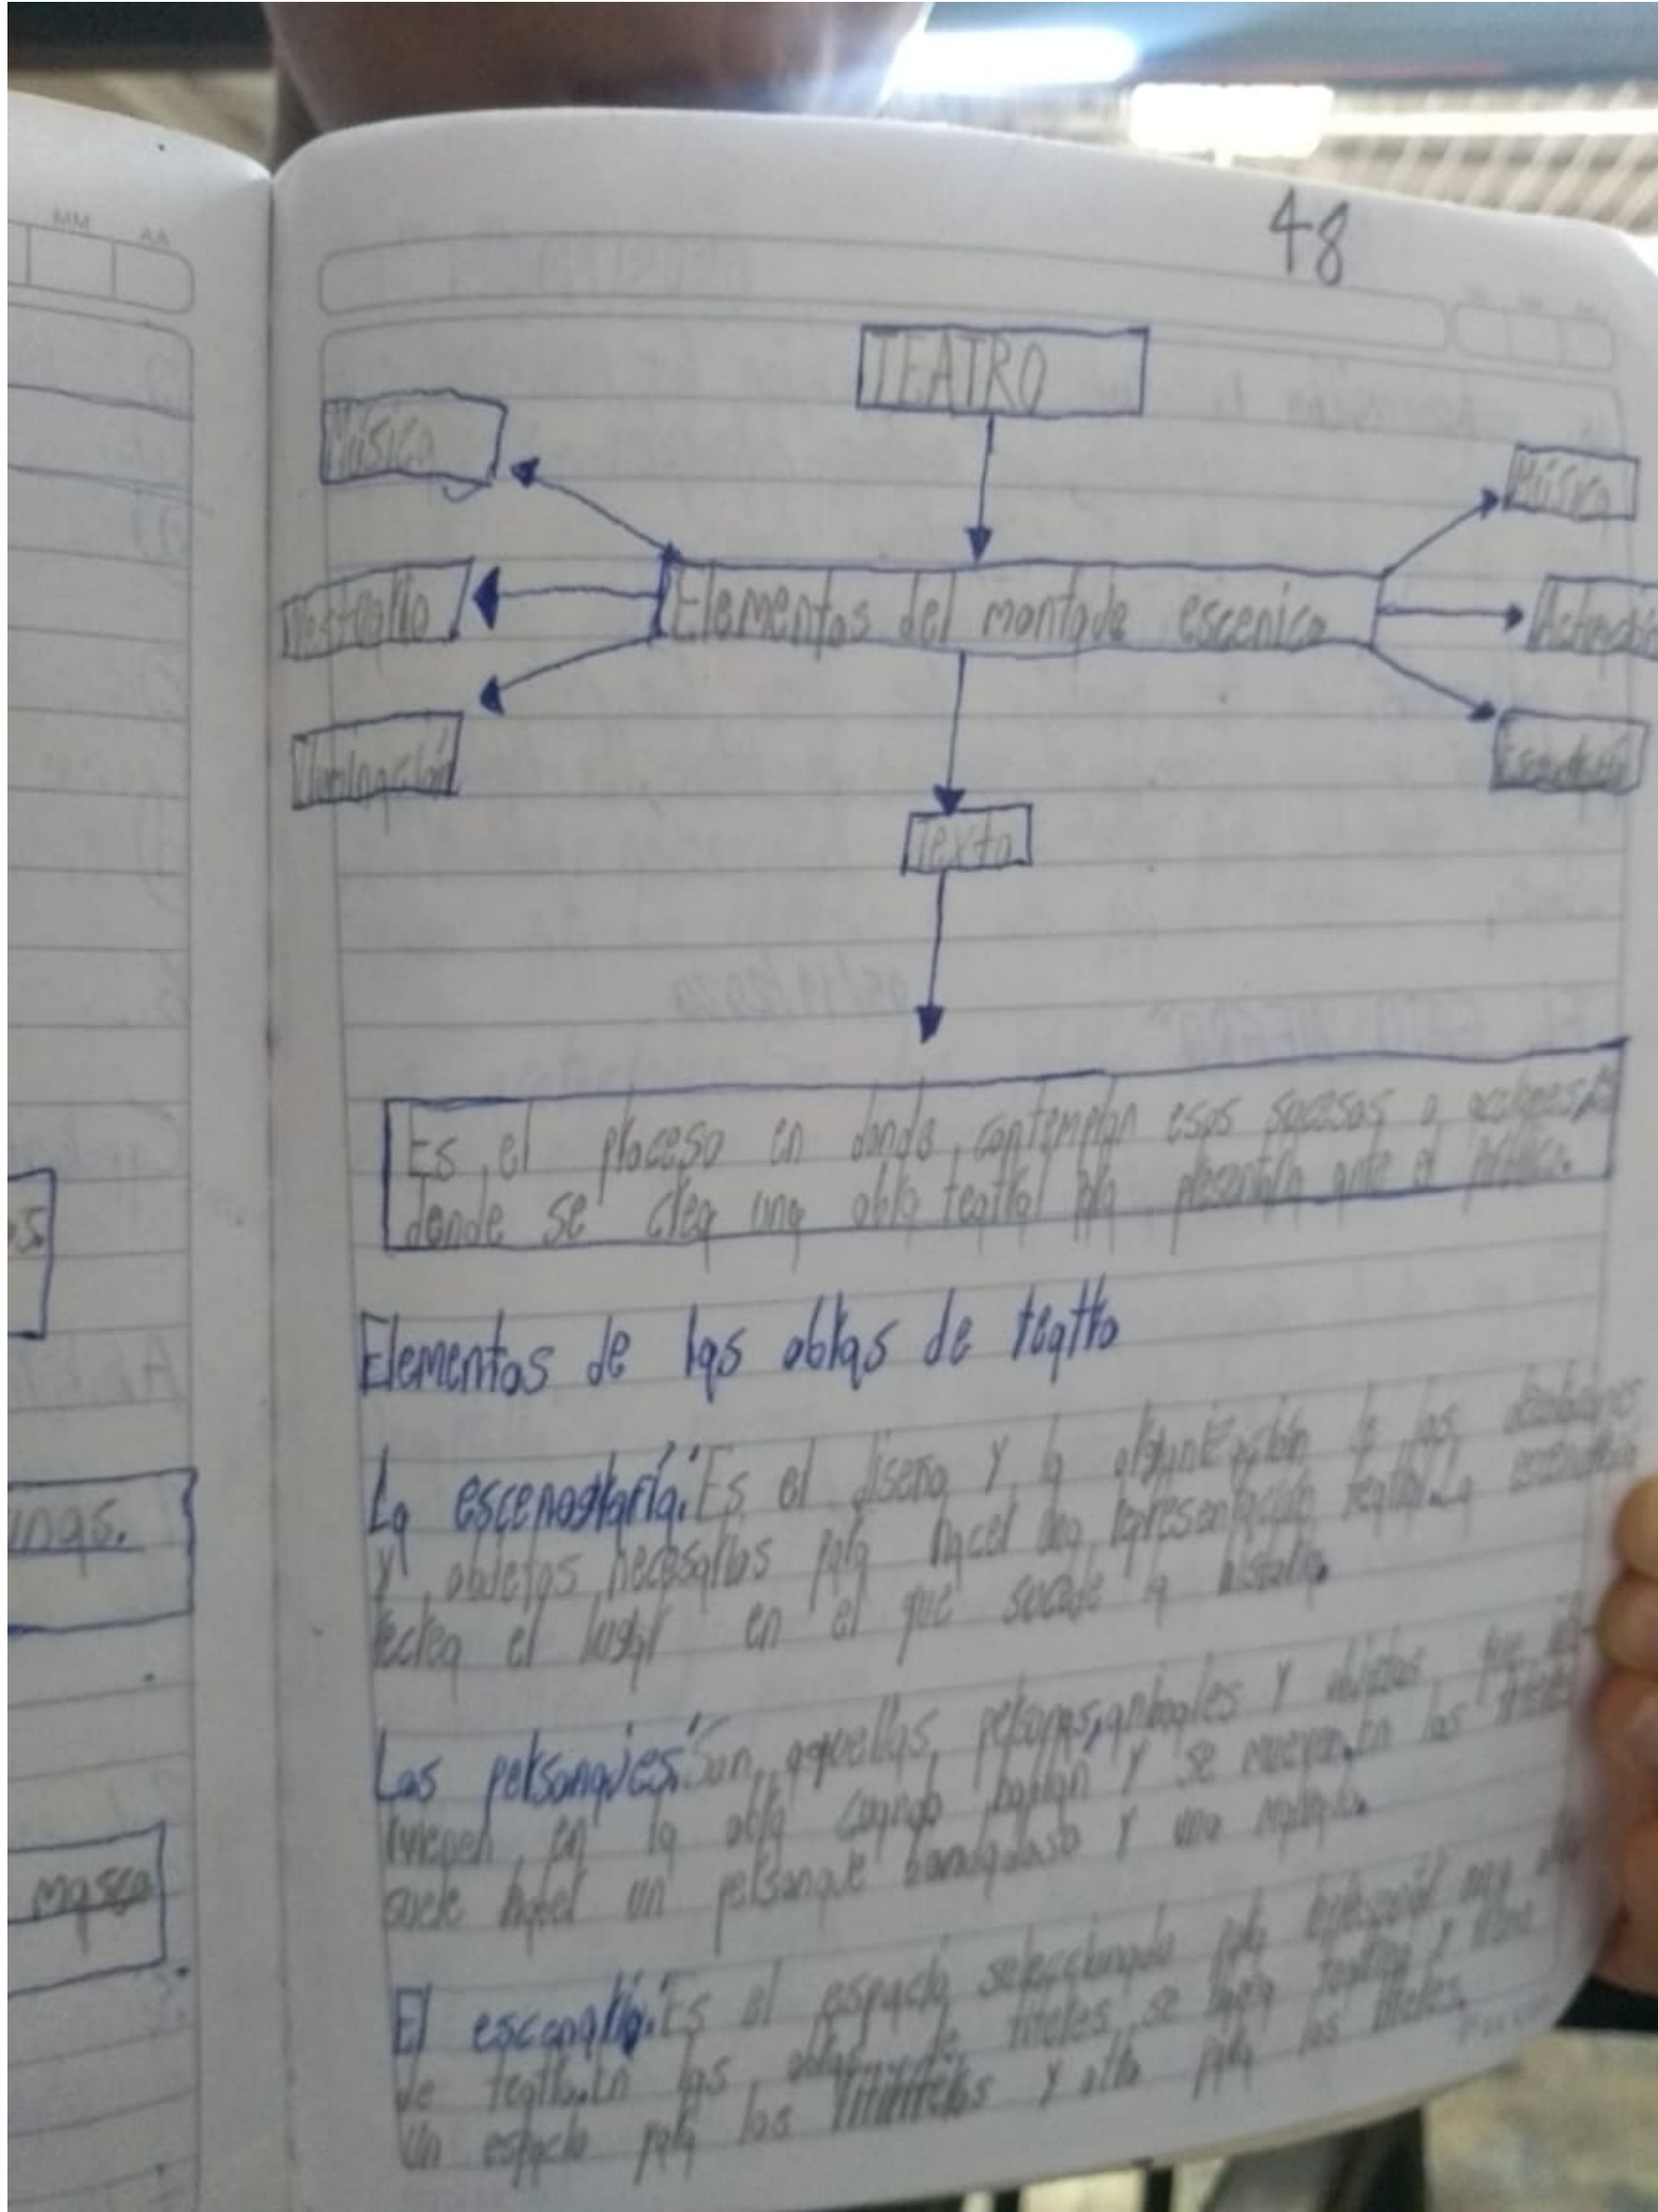 MM AA
48
TEATRO
Música
Música
Vestuario
Elementos del montade escenico
Actuación
Iluminación
Texto
Es el proceso en donde contemplan esos sucesos o acciones
donde se crea una obra teatral para presentarla ante el público.
Elementos de las obras de teatro
La escenografía: Es el diseño y la organización de los
y objetos necesarios para hacer una representación teatral. La
recrea el lugar en el que sucede la historia.
Los personajes: Son aquellas personas, animales y objetos que
en la obra cuando hablan y se mueven. En los
suele haber un personaje bondadoso y uno
El escenario: Es el espacio seleccionado para una
de teatro. En las obras de títeres se
un espacio para los y otro para los títeres.
os.
inas.
masca